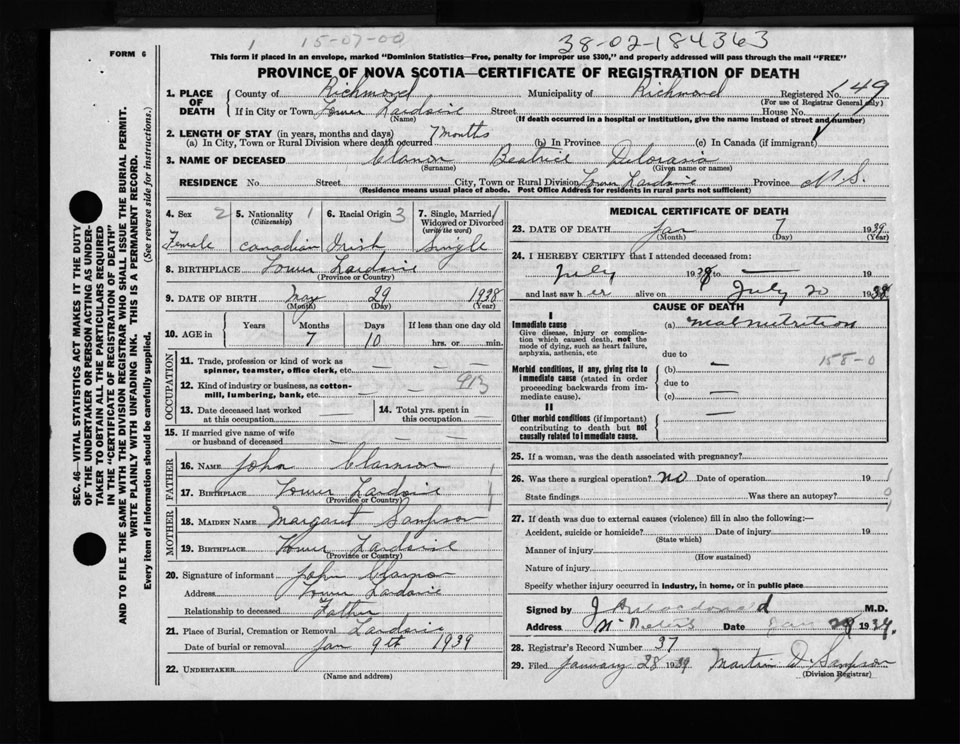 1 15-07-00 38-02-184363
FORM 6
This form if placed in an envelope, marked "Dominion Statistics—Free, penalty for improper use $300," and properly addressed will pass through the mail "FREE"
PROVINCE OF NOVA SCOTIA—CERTIFICATE OF REGISTRATION OF DEATH
1. PLACE OF DEATH County of Richmond Municipality of Richmond Registered No. 149
(For use of Registrar General only)
If in City or Town Lower Lardoise Street House No.
(Name) (If death occurred in a hospital or institution, give the name instead of street and number)
2. LENGTH OF STAY (in years, months and days) 7 months
(a) In City, Town or Rural Division where death occurred (b) In Province (c) In Canada (if immigrant)
3. NAME OF DECEASED Clannon Beatrice Delorasia
(Surname) (Given name or names)
RESIDENCE No. Street City, Town or Rural Division Lower Lardoise Province N.S.
(Residence means usual place of abode. Post Office Address for residents in rural parts not sufficient)
4. Sex 2 5. Nationality 1 6. Racial Origin 3 7. Single, Married, 1
(Citizenship) Widowed or Divorced
(write the word)
Female Canadian Irish Single
8. BIRTHPLACE Lower Lardoise
(Province or Country)
9. DATE OF BIRTH May 29 1938
(Month) (Day) (Year)
10. AGE in Years Months Days If less than one day old
7 10 hrs. or min.
OCCUPATION
11. Trade, profession or kind of work as
spinner, teamster, office clerk, etc. — — —
12. Kind of industry or business, as cotton-
mill, lumbering, bank, etc. — — 913
13. Date deceased last worked
at this occupation —
14. Total yrs. spent in
this occupation —
15. If married give name of wife
or husband of deceased — — — —
FATHER
16. NAME John Clannon
17. BIRTHPLACE Lower Lardoise
(Province or Country)
MOTHER
18. MAIDEN NAME Margaret Sampson
19. BIRTHPLACE Lower Lardoise
(Province or Country)
20. Signature of informant John Clannon
Address Lower Lardoise
Relationship to deceased Father
21. Place of Burial, Cremation or Removal Lardoise
Date of burial or removal Jan 9th 1939
22. UNDERTAKER
(Name and Address)
MEDICAL CERTIFICATE OF DEATH
23. DATE OF DEATH Jan 7 1939
(Month) (Day) (Year)
24. I HEREBY CERTIFY that I attended deceased from:
July 1938 to — 19
and last saw her alive on July 20 1938
CAUSE OF DEATH
I
Immediate cause (a) Malnutrition
Give disease, injury or complica-
tion which caused death, not the
mode of dying, such as heart failure,
asphyxia, asthenia, etc
due to
Morbid conditions, if any, giving rise to (b) — 158-0
immediate cause (stated in order
proceeding backwards from im-
mediate cause).
due to
(c) —
II
Other morbid conditions (if important) —
contributing to death but not
causally related to immediate cause.
25. If a woman, was the death associated with pregnancy?
26. Was there a surgical operation? No Date of operation 19
State findings Was there an autopsy?
27. If death was due to external causes (violence) fill in also the following:—
Accident, suicide or homicide? Date of injury 19
(State which)
Manner of injury
(How sustained)
Nature of injury
Specify whether injury occurred in industry, in home, or in public place
Signed by M.D.
Address St Peters Date Jan 1939.
28. Registrar's Record Number 37
29. Filed January 28 1939 Martin D. Sampson
(Division Registrar)
SEC. 46—VITAL STATISTICS ACT MAKES IT THE DUTY
OF THE UNDERTAKER OR PERSON ACTING AS UNDER-
TAKER TO OBTAIN ALL THE PARTICULARS REQUIRED
IN THE "CERTIFICATE OF REGISTRATION OF DEATH"
AND TO FILE THE SAME WITH THE DIVISION REGISTRAR WHO SHALL ISSUE THE BURIAL PERMIT.
WRITE PLAINLY WITH UNFADING INK. THIS IS A PERMANENT RECORD.
Every item of information should be carefully supplied. (See reverse side for instructions.)